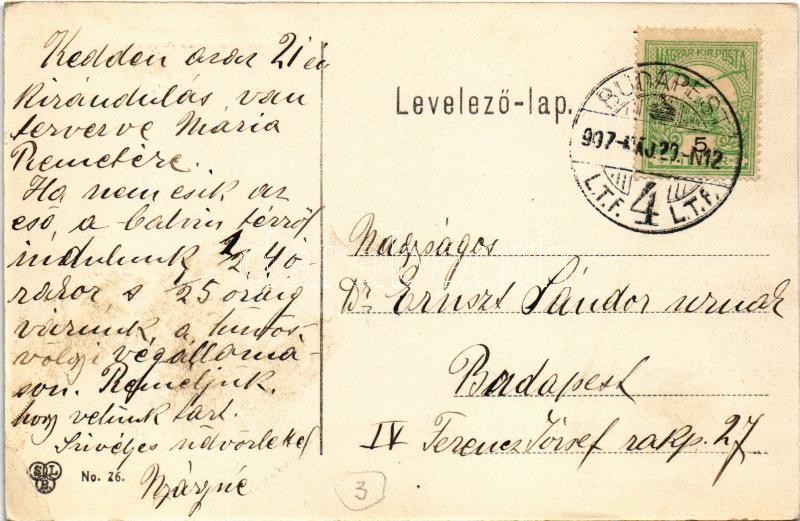 Kedden azaz 21 én
kirándulás van
tervezve Mária
Remetére.
Ha nem esik az
eső a Calvin térről
indulunk 1/2 4 ó-
rakor s 1/2 5 óráig
várunk a hűvös-
völgyi végálloma-
son. Reméljük,
hogy velünk tart.
Szivélyes üdvözlettel
S.L.
B.
No. 26.
Levelező-lap.
MAGYAR KIR. POSTA
5
BUDAPEST
907 MÁJ 20 N12
L.T.F. 4 L.T.F.
Nagyságos
Dr Ernszt Sándor urnak
Budapest
IV Ferencz József rakp. 27
3